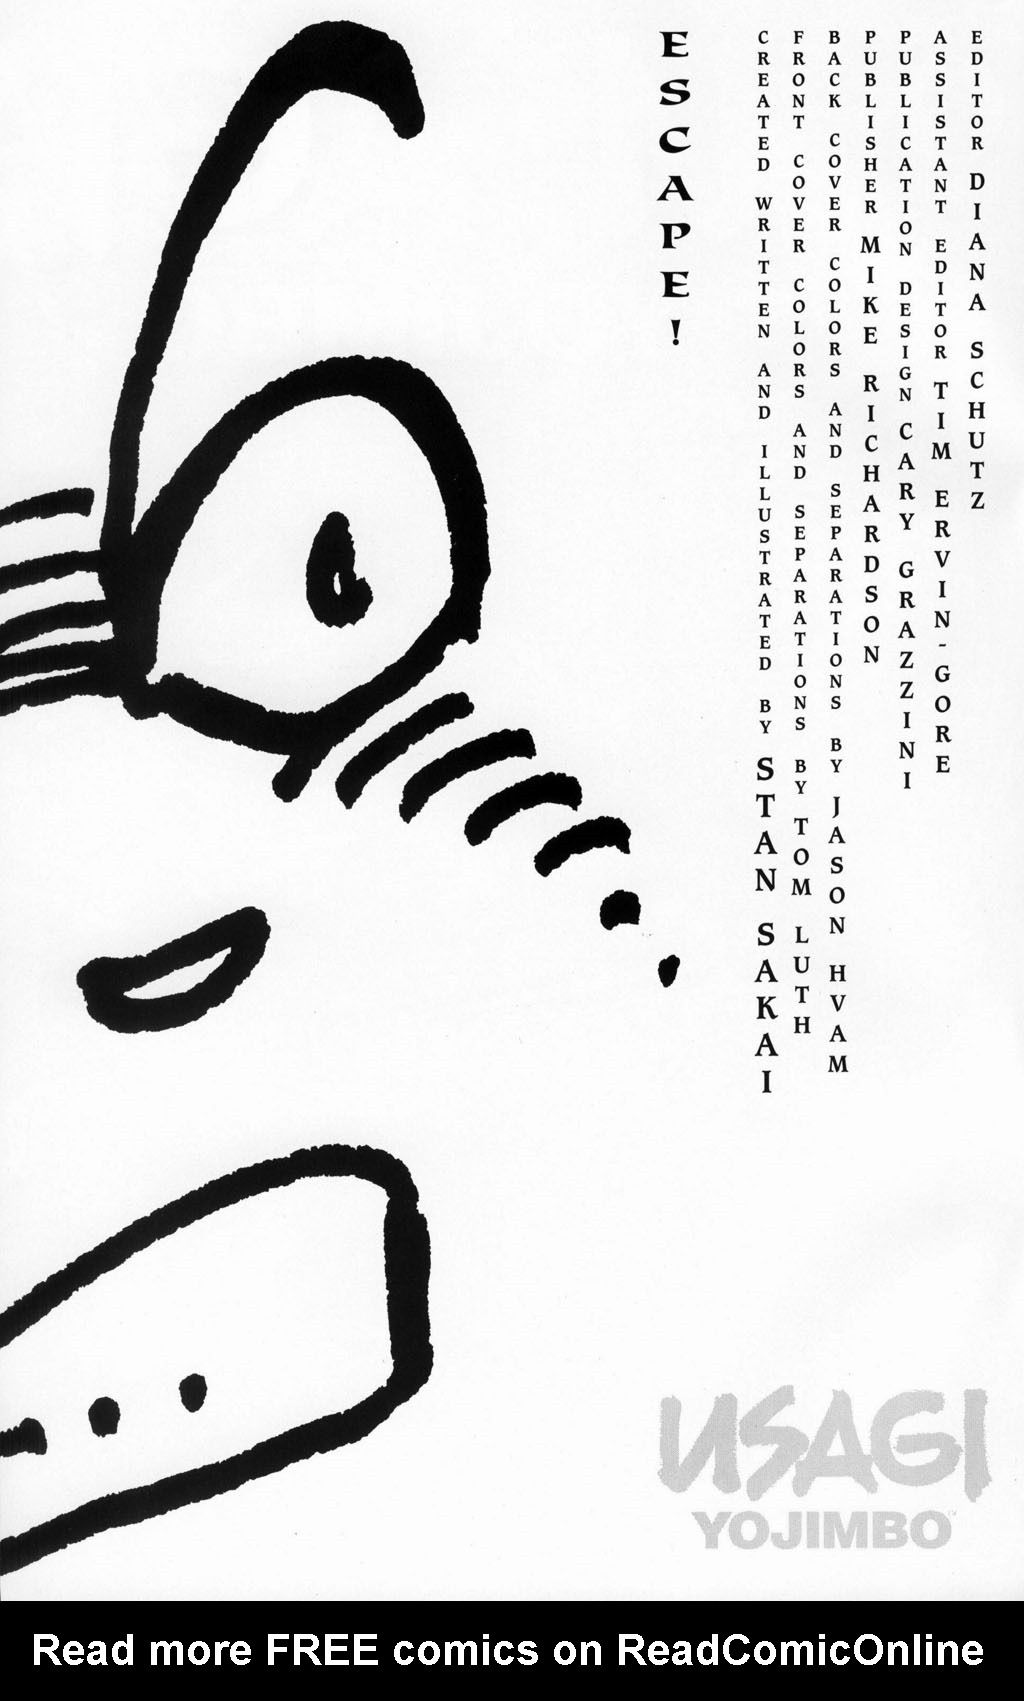 ESCAPE!
CREATED WRITTEN AND ILLUSTRATED BY STAN SAKAI
FRONT COVER COLORS AND SEPARATIONS BY TOM LUTH
BACK COVER COLORS AND SEPARATIONS BY JASON HVAM
PUBLISHER MIKE RICHARDSON
PUBLICATION DESIGN CARY GRAZZINI
ASSISTANT EDITOR TIM ERVIN-GORE
EDITOR DIANA SCHUTZ
USAGI
YOJIMBO™
Read more FREE comics on ReadComicOnline